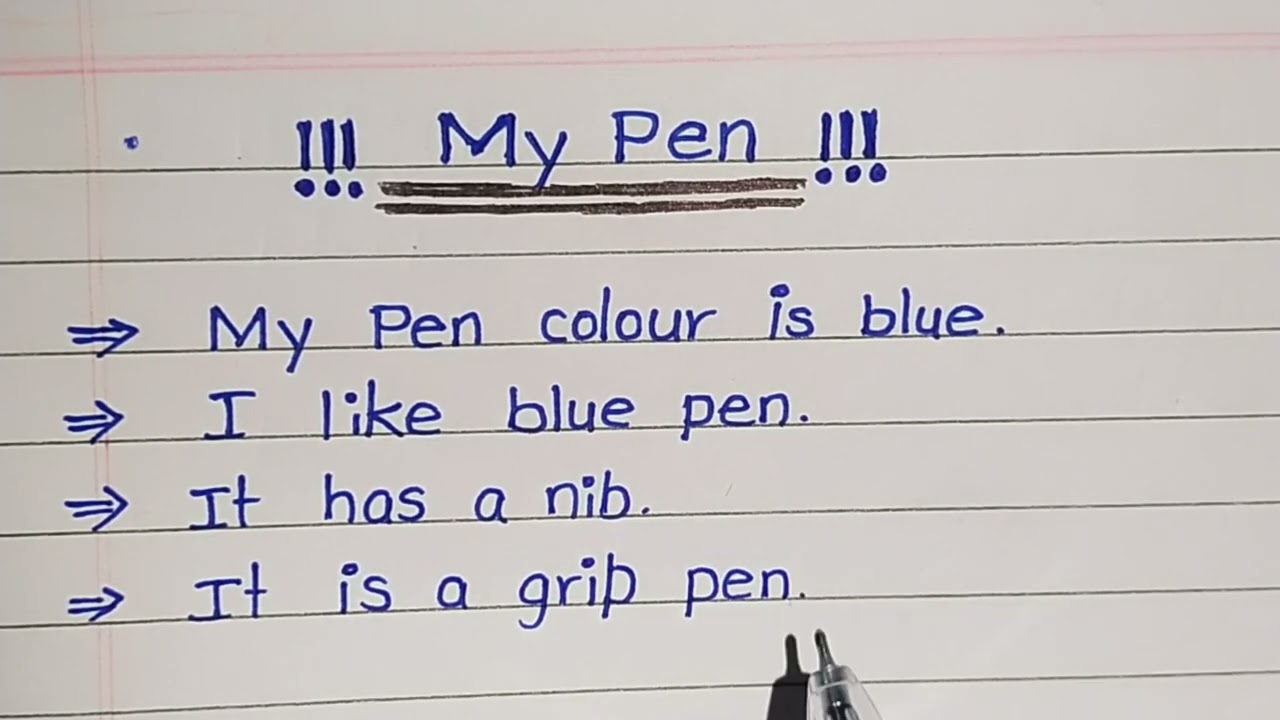 !!! My Pen !!!
⇒ My Pen colour is blue.
⇒ I like blue pen.
⇒ It has a nib.
⇒ It is a grip pen.